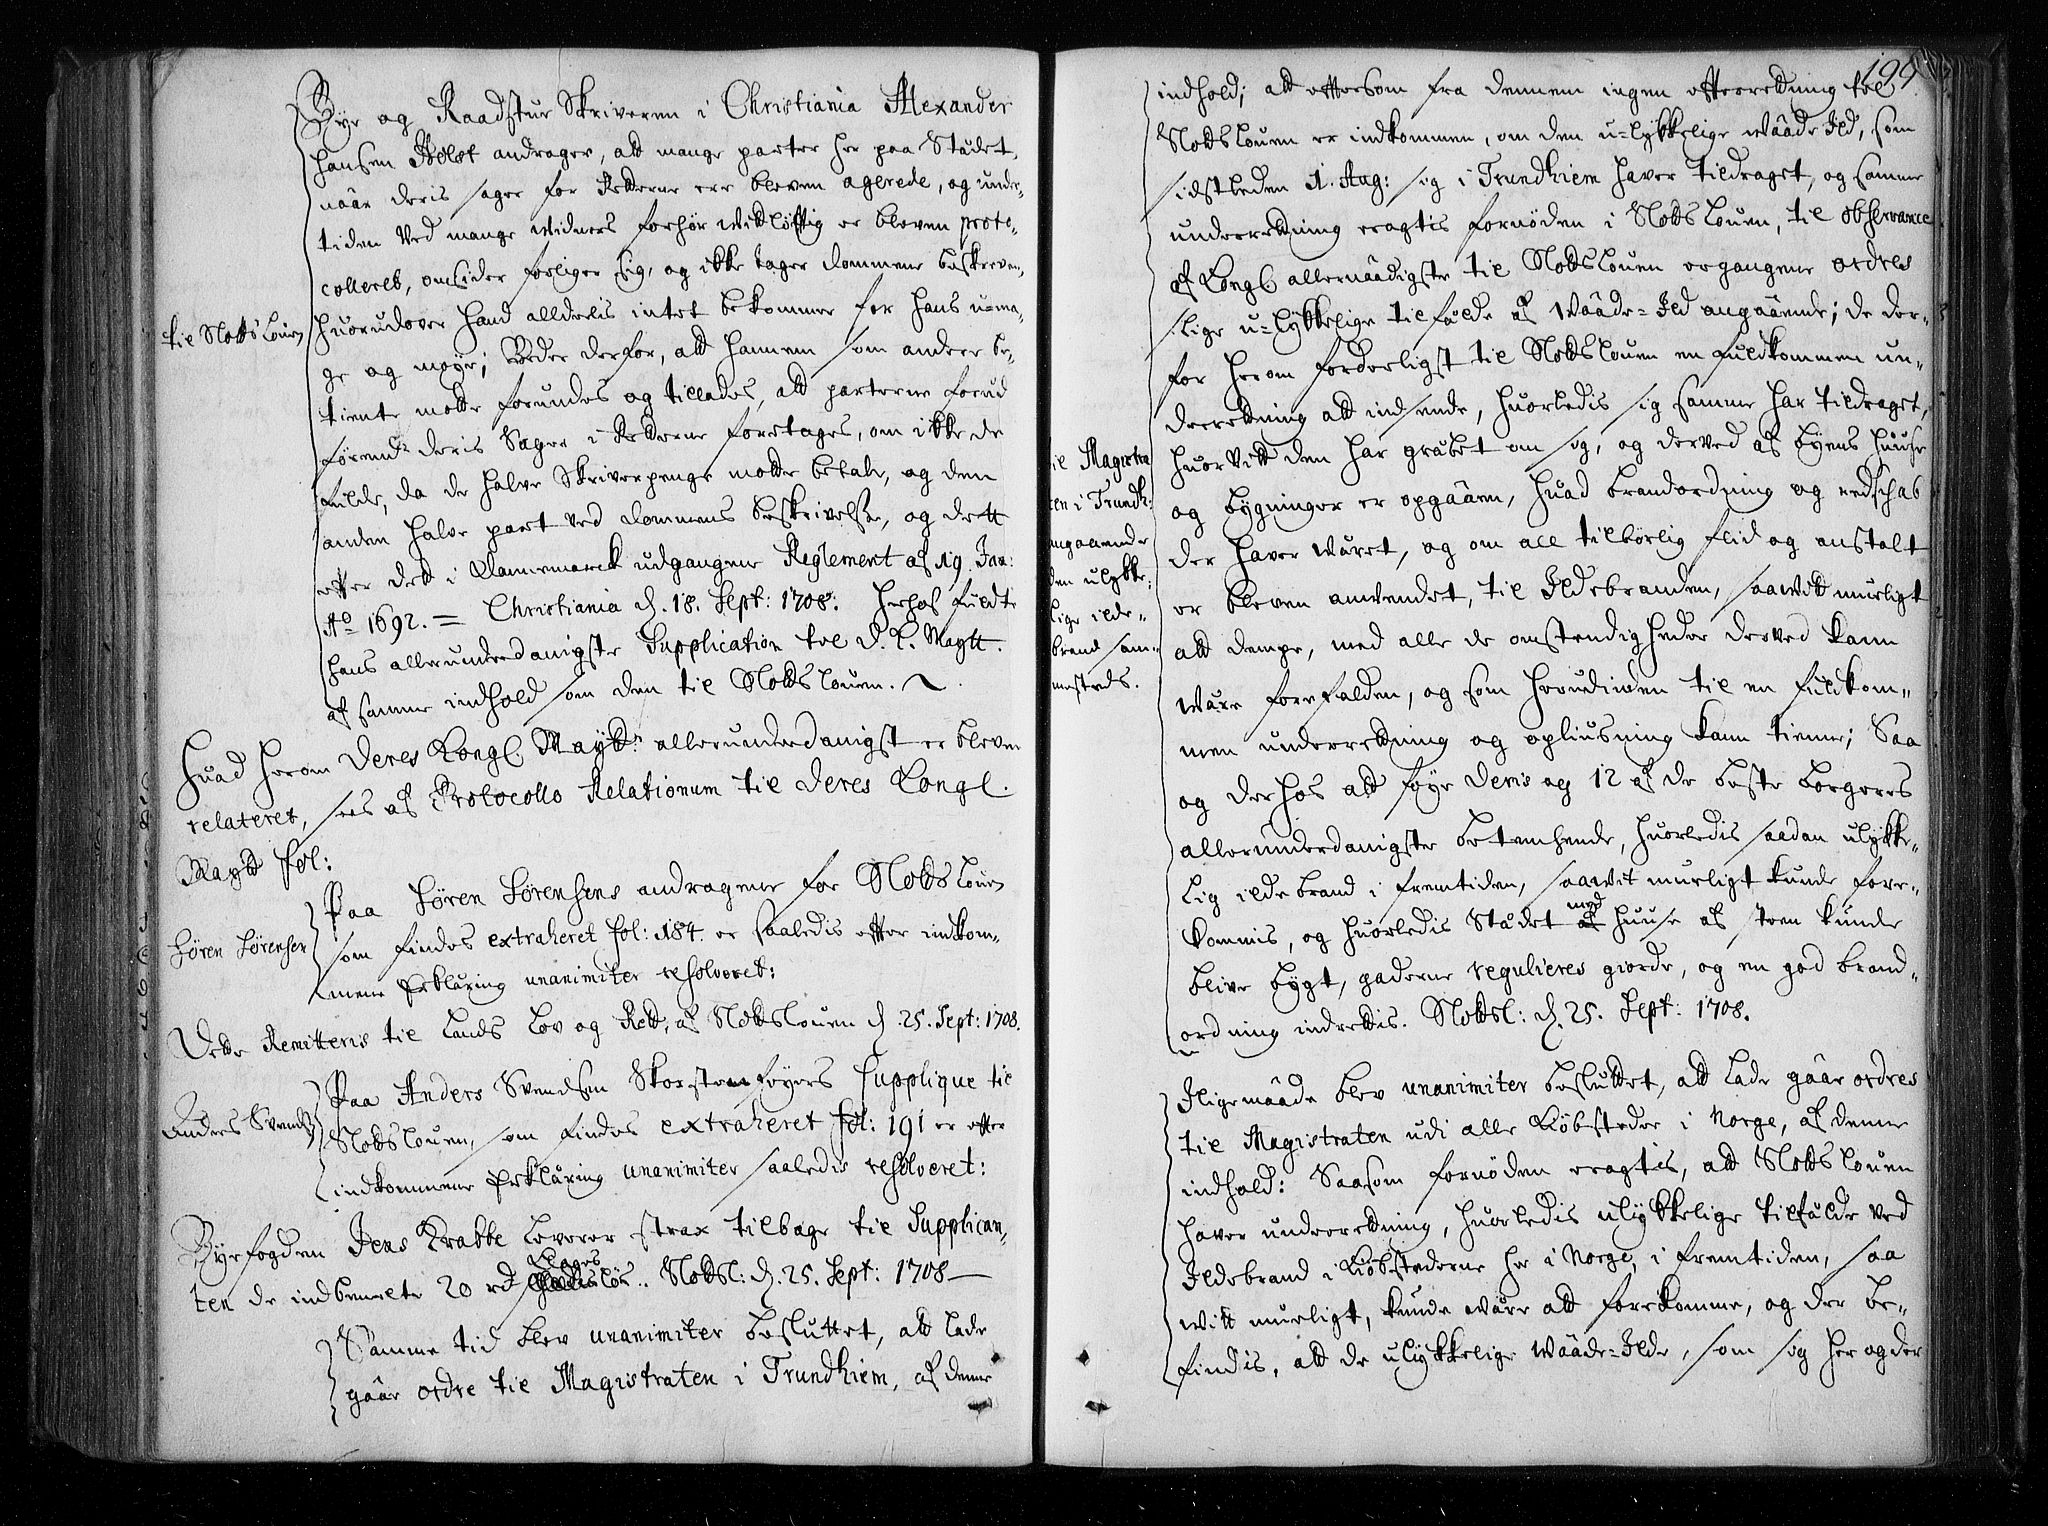 Bye og Raadstue Skriveren i Christiania Alexander
Hansen Holst andrager, att mange parter her paa Stædet,
naar deris sager for Retterne ere bleven agerede, og under-
tiden ved mange widners forhør widløftig er bleven proto-
colleret, omsider forliger sig, og ikke tager Dommene beskreven,
til Slotts Louen
huorudover hand alldelis intet bekommer for hans u-ma-
ge og møye; Beder derfor, att hannem som andere be-
tiente motte forundes og tillades, att parterne forud
førend deris Sager i Retterne foretages, om ikke de
fulde, da de halve Skriverpenge motte betale, og den
anden halve part ved Dommens beskrivelse, og dett
efter dett i Dannemarck udgangne Reglement af 19. Jan:
Ao 1692. = Christiania d. 18. Sept: 1708. Herhos fuldte
hans allerunderdanigste Supplication til D. K. Maytt.
af samme indhold som den til Slotts Louen.
Huad herom Deres Kongl. Maytt. allerunderdanigst er bleven
relateret, sees af Protocollo Relationum til Deres Kongl.
Maytt fol:
Paa Søren Sørensens andragene for Slotts Louen
Søren Sørensen
som findes extraheret fol: 184. er saaledis efter indkom-
mene Erklæring unanimiter resolveret:
Dette Remitteris til Lands Lov og Rett, af Slottslouen d. 25. Sept: 1708.
Paa Anders Svendsen Skorstenføyers Supplique til
Anders Svends:
Slotts Louen, som findes extraheret fol: 191 er efter
indkommene Erklæring unanimiter saaledis resolveret:
Byefogden Jens Krabbe leverer strax tilbage til Supplican-
ten de indbemelte 20 rd Klages
løs.. Slottsl: d. 25. Sept: 1708—
Samme tid blev unanimiter besluttet, att lade
gaar ordre til Magistraten i Trundhiem, af denne
199.
indhold; att eftersom fra dennem ingen efterretning til
Slottslouen er indkommen, om den u-lykkelige Waade Ild, som
sidstleden 1. Aug: sig i Trundhiem haver tildraget, og samme
underretning eragtis fornøden i Slotts Louen, til observance
af Kongl. allernaadigste til Slottslouen ergangene ordres
slige u-lykkelige tilfælde af Waade-Ild angaaende; de der-
for herom forderligst til Slottslouen en fuldkommen un-
derretning att indsende, huorledis sig samme har tildraget,
til Magistra
ten i Trundh:
angaaende
den ulykke-
lige ilde-
brand sam-
mesteds.
huor vitt den har grabet om sig, og derved af byens huuse
og bygninger er opgaaen, huad brandordning og redschab
der haver wæret, og om all tilbørlig flid og anstalt
er bleven anvendet, til Ildebranden, saawitt mueligt
att dempe, med alle de omstendigheder derved kann
wære forefalden, og som herudinden til en fuldkom-
men underretning og opliusning kann tienne; Saa
og derhos att føye Deris og 12 af de beste borgeres
allerunderdanigste betenkende, huorledis saadan ulykke-
lig ildebrand i fremtiden, saawit mueligt kunde fore-
kommis, og huorledis Stædet med huuse af steen kunde
blive bygt, gaderne regulieres giorde, og en god brand-
ordning indrettis. Slottsl: d. 25. Sept: 1708.
Iligemaade blev unanimiter besluttet, att lade gaar ordres
til Magistraten udi alle Kiøbsteder i Norge, af denne
indhold: Saasom fornøden eragtis, att Slotts Louen
haver underretning, huorledis ulykkelige tilfælde ved
Ildebrand i Kiøbstederne her i Norge, i fremtiden, saa
witt mueligt, kunde wære att forekomme, og der be-
findis, att de ulykkelige Waade-Ilde, som sig her og der